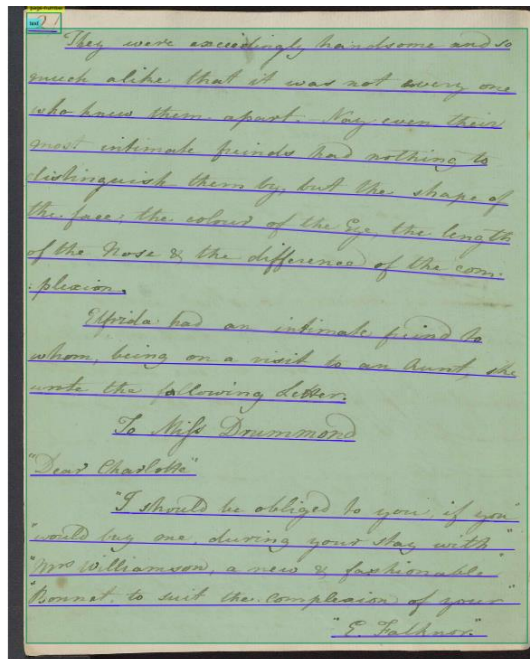 2
They were exceedingly handsome and so
much alike that it was not every one
who knew them apart. Nay even their
most intimate freinds had nothing to
distinguish them by, but the shape of
the face, the colour of the Eye, the length
of the Nose & the difference of the com-
:plexion.
Elfrida had an intimate freind to
whom, being on a visit to an Aunt, she
wrote the following Letter.
To Miss Drummond
"Dear Charlotte"
"I should be obliged to you, if you"
"would buy me, during your stay with"
"Mrs Williamson, a new & fashionable"
"Bonnet, to suit the complexion of your"
"E. Falknor."